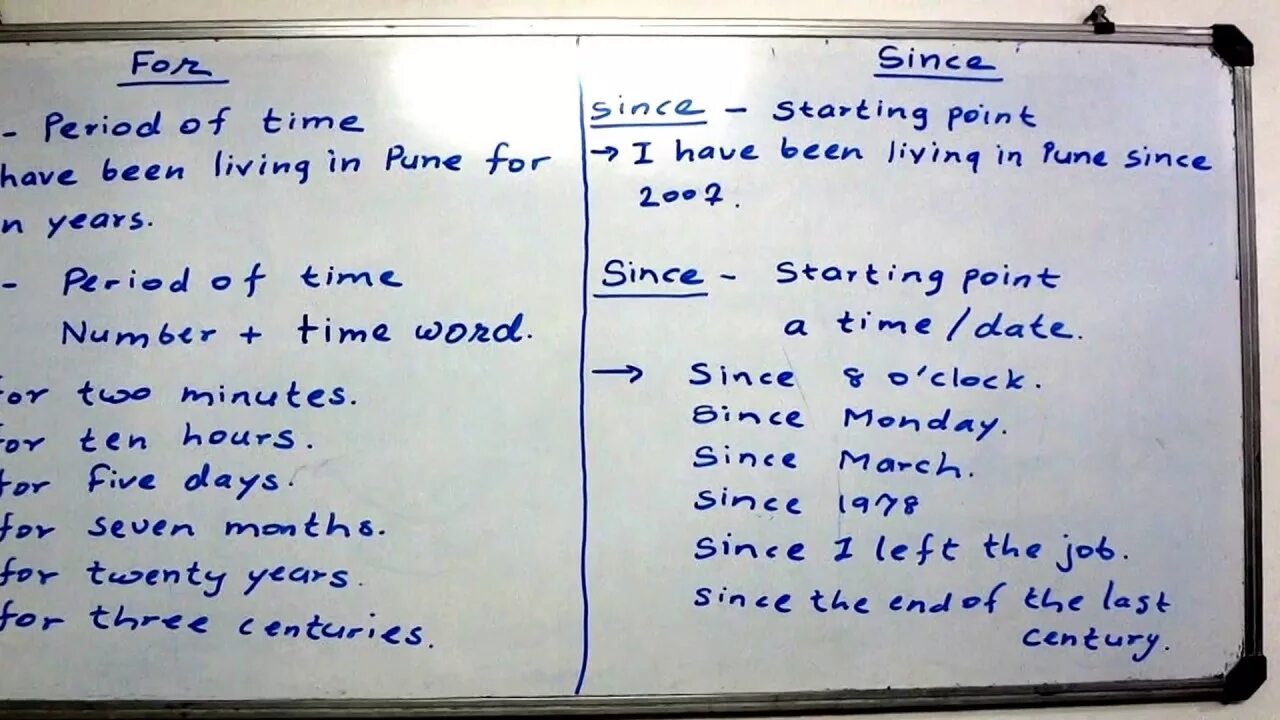 For
- Period of time
have been living in Pune for
n years.
- Period of time
Number + time word.
for two minutes.
for ten hours.
for five days.
for seven months.
for twenty years.
for three centuries.
Since
since - starting point
→ I have been living in Pune since
2007.
Since - Starting point
a time/date.
→ Since 8 o'clock.
Since Monday.
Since March.
Since 1978
Since I left the job.
since the end of the last
century.